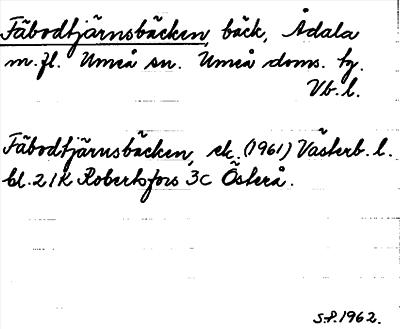 Fäbodtjärnsbäcken, bäck, Ådala
m.fl. Umeå sn. Umeå doms. tg.
Vb. l.
Fäbodtjärnsbäcken, ek. (1961) Västerb. l.
bl. 21K Robertsfors 3C Österå.
S.P. 1962.